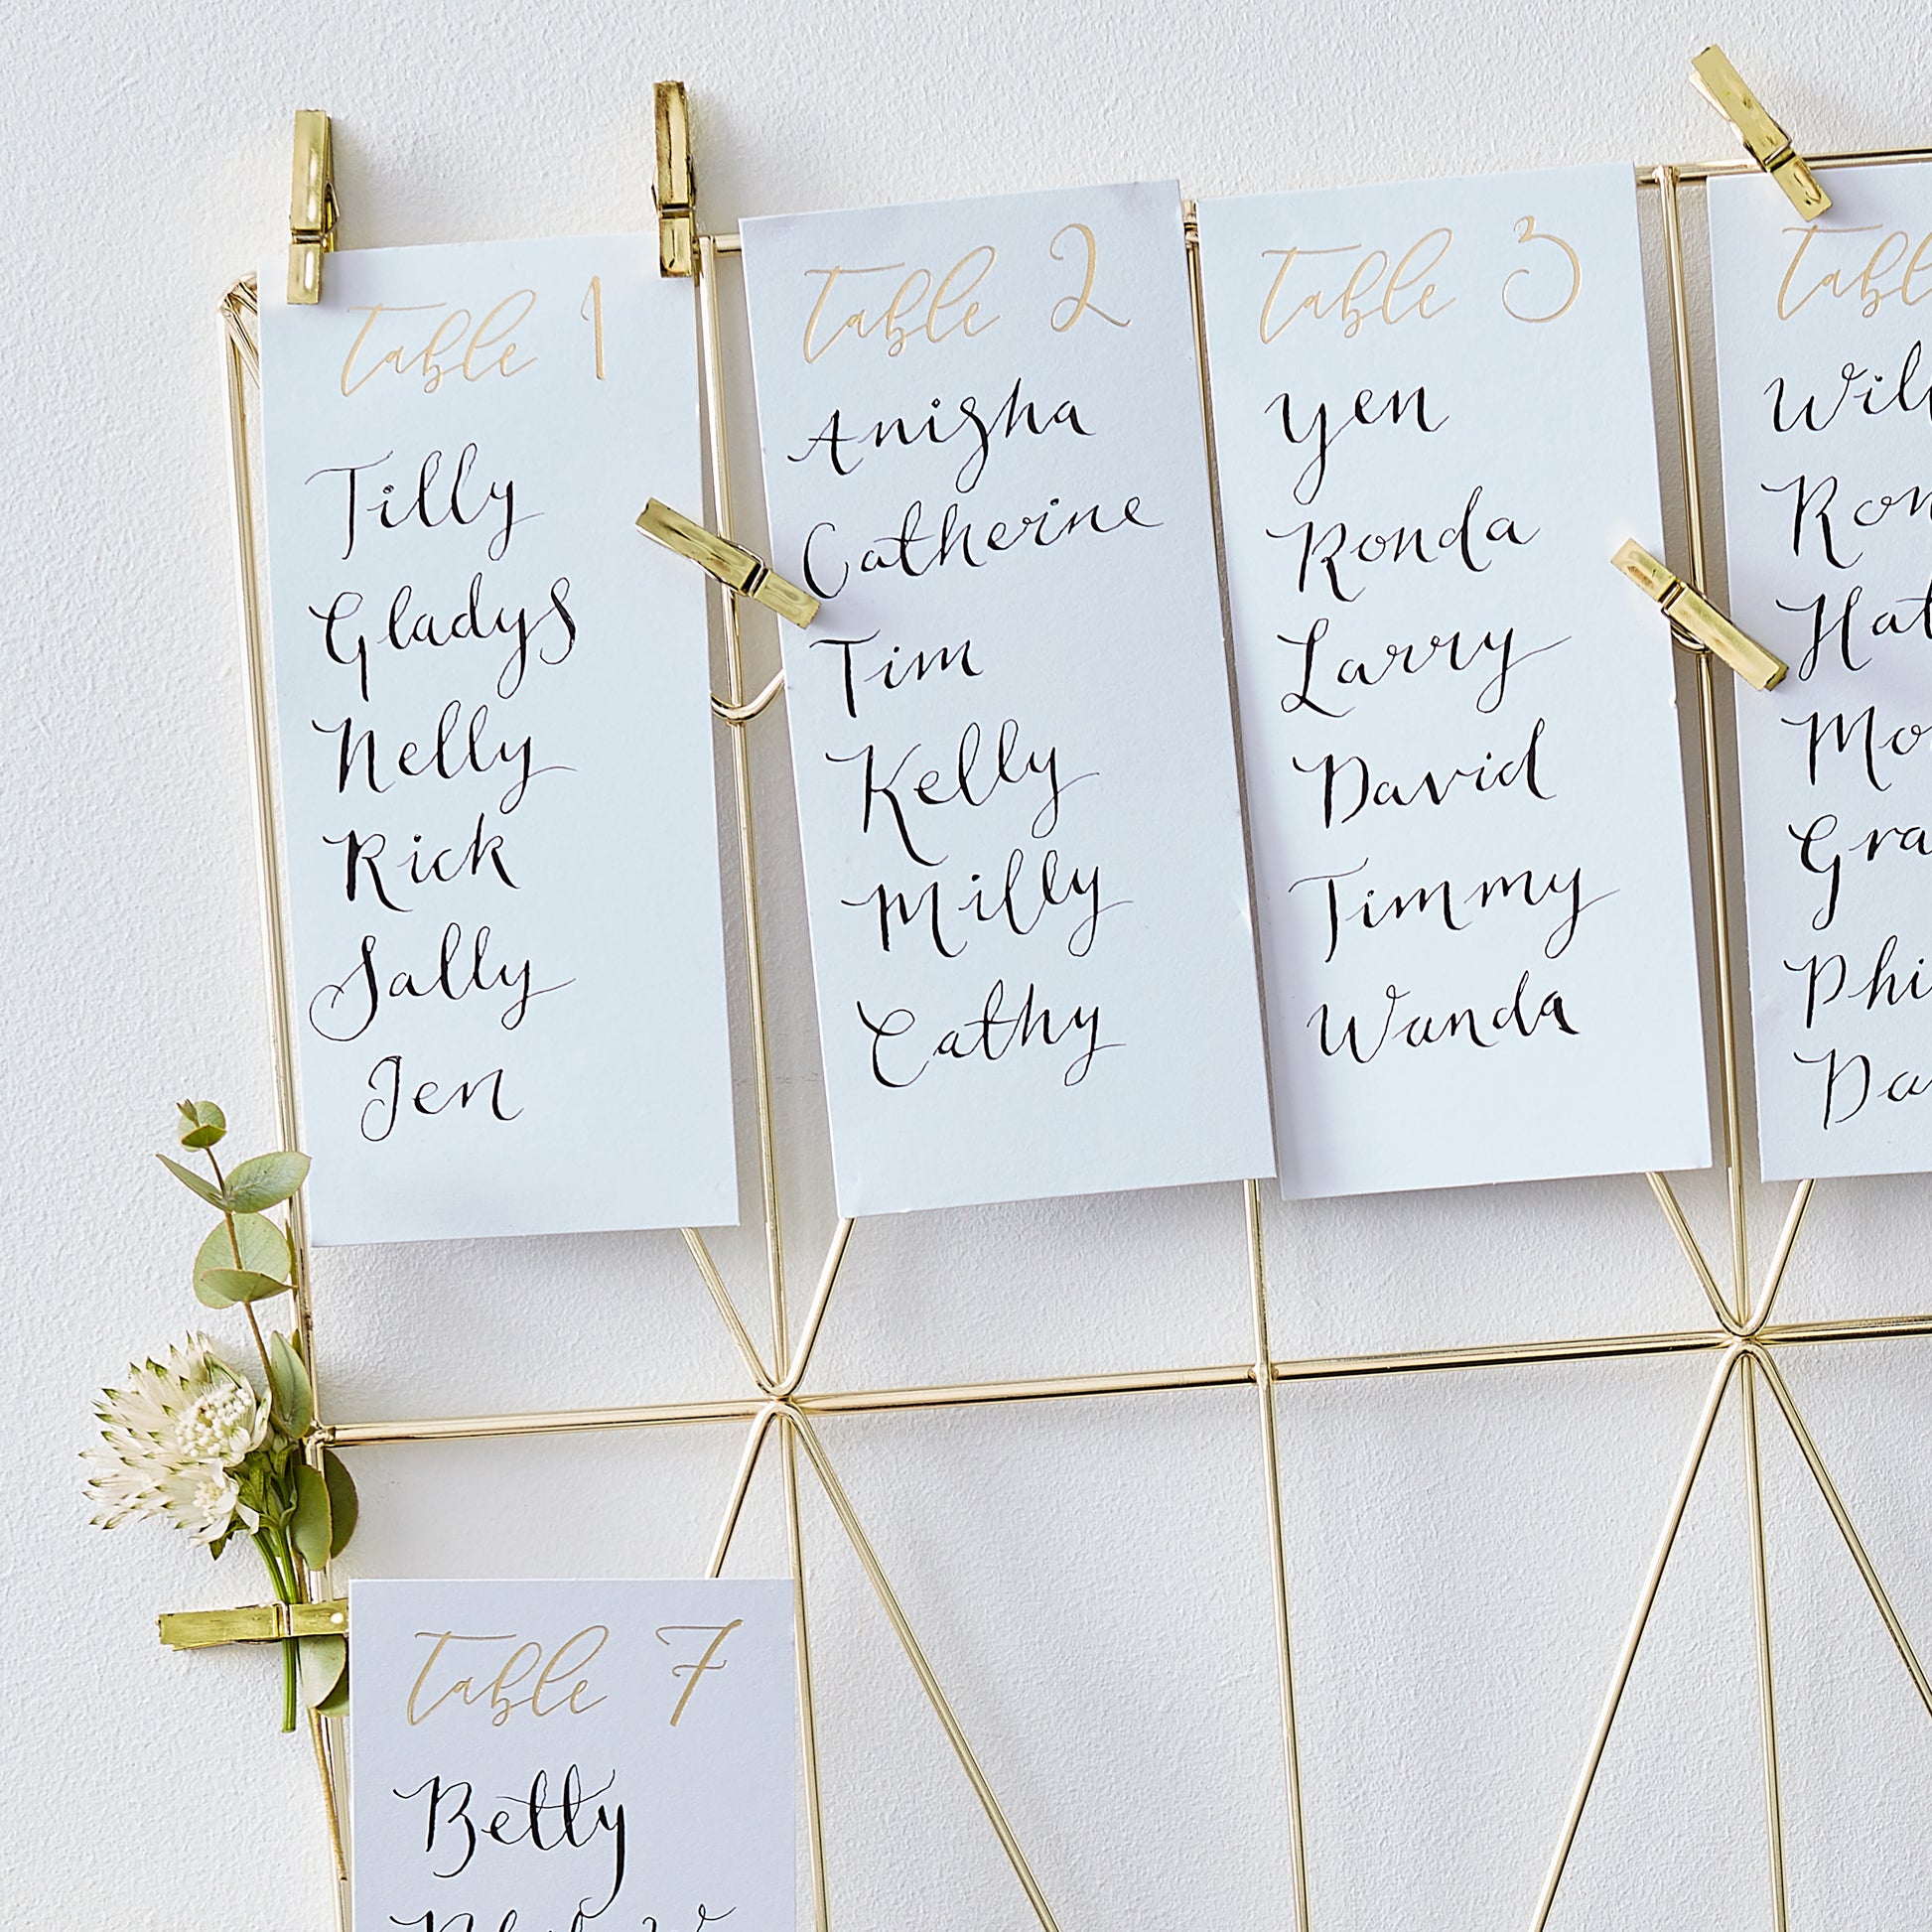 Table 1
Tilly
Gladys
Nelly
Rick
Sally
Jen
Table 2
Anisha
Catherine
Tim
Kelly
Milly
Cathy
Table 3
Yen
Ronda
Larry
David
Timmy
Wanda
Table 7
Betty